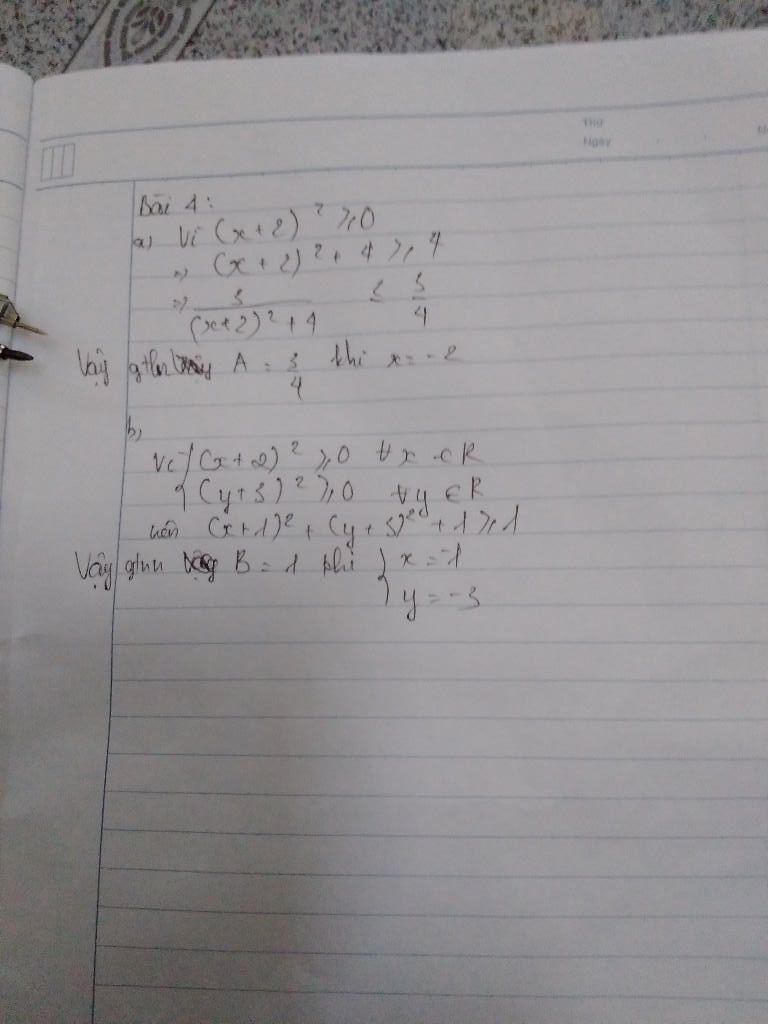 Thứ
Ngày
Bài 4:
a) Vì (x+2)² ≥ 0
=> (x+2)² + 4 ≥ 4
=> 3/((x+2)²+4) ≤ 3/4
Vậy gtln A = 3/4 khi x = -2
b,
Vì { (x+2)² ≥ 0 ∀x ∈ R
(y+3)² ≥ 0 ∀y ∈ R
nên (x+1)² + (y+3)² + 1 ≥ 1
Vậy gtnn B = 1 khi { x = -1
y = -3